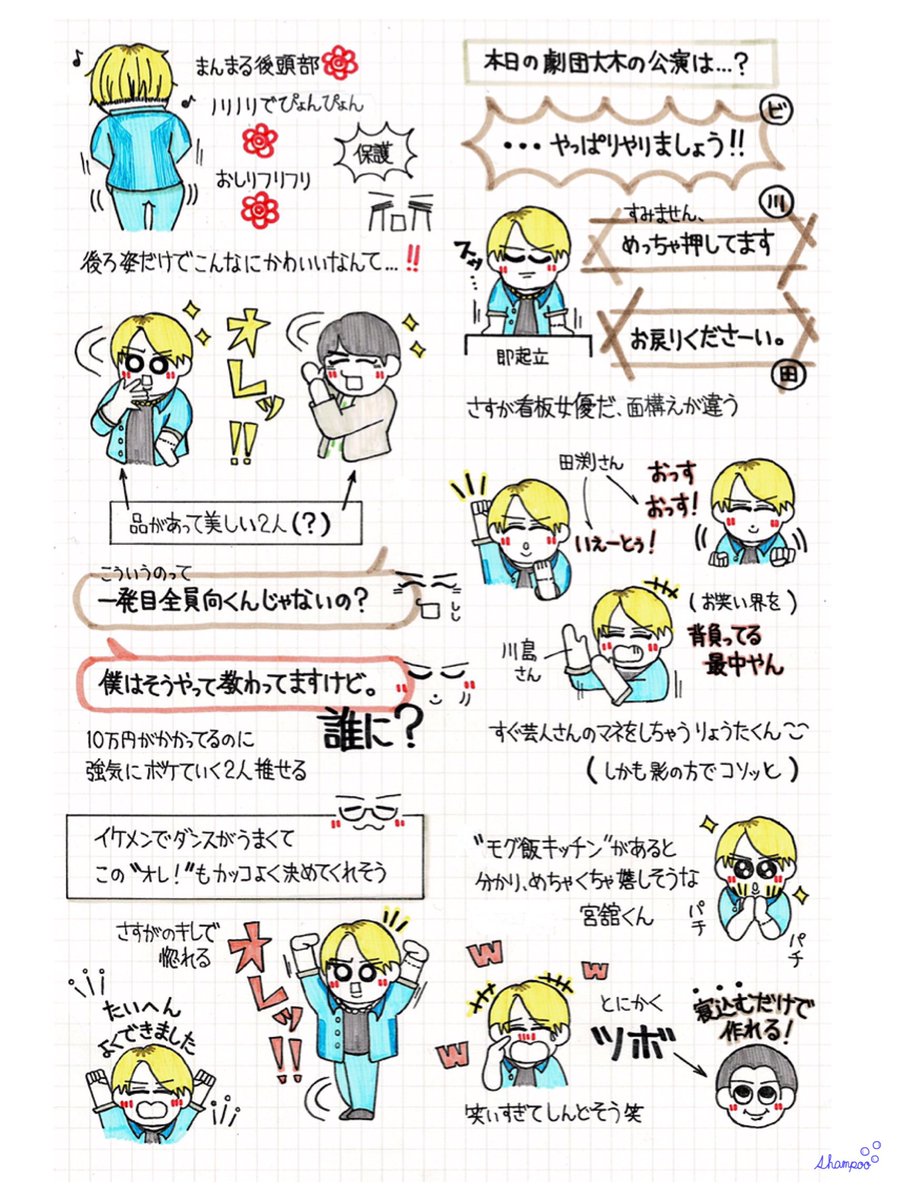 まんまる後頭部
ノリノリでぴょんぴょん
おしりフリフリ
保護
後ろ姿だけでこんなにかわいいなんて…!!
オレッ!!
品があって美しい2人(?)
こういうのって
一発目全員向くんじゃないの?
僕はそうやって教わってますけど。
誰に?
10万円がかかってるのに
強気にボケていく2人推せる
イケメンでダンスがうまくて
この"オレ!"もカッコよく決めてくれそう
さすがのキレで
惚れる
オレッ!!
たいへん
よくできました
本日の劇団大木の公演は…?
ビ
…やっぱりやりましょう!!
川
すみません、
めっちゃ押してます
スッ…
即起立
お戻りくださーい。
田
さすが看板女優だ、面構えが違う
田渕さん
おっす
おっす!
いえーとぅ!
川島
さん
(お笑い界を)
背負ってる
最中やん
すぐ芸人さんのマネをしちゃうりょうたくん〜
(しかも影の方でコソッと)
"モグ飯キッチン"があると
分かり、めちゃくちゃ嬉しそうな
宮舘くん
パチ
パチ
w
w
w
とにかく
ツボ
寝込むだけで
作れる!
笑いすぎてしんどそう笑
Shampoo